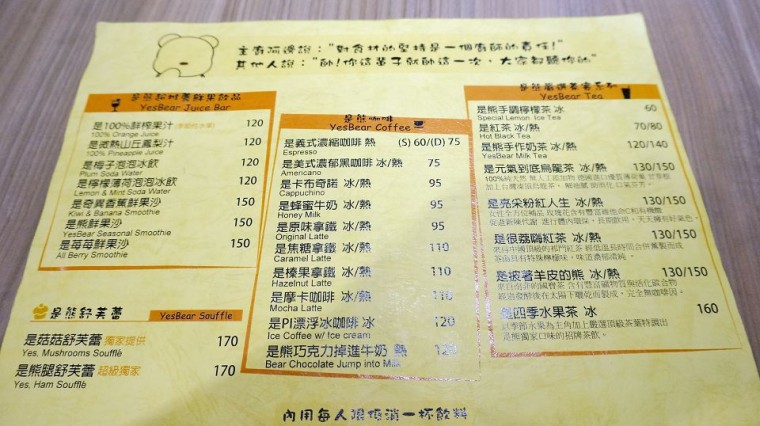 主廚阿邊說："對食材的堅持是一個廚師的責任!"
其他人說："帥!你這輩子就帥這一次，大家都聽你的"
YesBear Juice Bar
是100%鮮榨果汁 120
100% Orange Juice
是微熱山丘鳳梨汁 120
100% Pineapple Juice
是梅子泡泡冰飲 120
Plum Soda Water
是檸檬薄荷泡泡冰飲 120
Lemon & Mint Soda Water
是奇異香蕉鮮果沙 150
Kiwi & Banana Smoothie
是熊鮮果沙 150
YesBear Seasonal Smoothie
是苺苺鮮果沙 150
All Berry Smoothie
是熊舒芙蕾 YesBear Souffle
是菇菇舒芙蕾 獨家提供 170
Yes, Mushrooms Soufflè
是熊腿舒芙蕾 超級獨家 170
Yes, Ham Soufflè
是熊咖啡
YesBear Coffee
是義式濃縮咖啡 熱 (S) 60/(D) 75
Espresso
是美式濃郁黑咖啡 冰/熱 75
Americano
是卡布奇諾 冰/熱 95
Cappuchino
是蜂蜜牛奶 冰/熱 95
Honey Milk
是原味拿鐵 冰/熱 95
Original Latte
是焦糖拿鐵 冰/熱 110
Caramel Latte
是榛果拿鐵 冰/熱 110
Hazelnut Latte
是摩卡咖啡 冰/熱 110
Mocha Latte
是PI漂浮冰咖啡 冰 120
Ice Coffee w/ Ice cream
是熊巧克力掉進牛奶 熱 120
Bear Chocolate Jump into Milk
YesBear Tea
是熊手調檸檬茶 冰 60
Special Lemon Ice Tea
是紅茶 冰/熱 70/80
Hot Black Tea
是熊手作奶茶 冰/熱 120/140
YesBear Milk Tea
是元氣到底烏龍茶 冰/熱 130/150
是亮采粉紅人生 冰/熱 130/150
是很荔嗨紅茶 冰/熱 130/150
是披著羊皮的熊 冰/熱 130/150
是四季水果茶 冰 160
以季節水果為主角加上嚴選頂級茶葉特調出
是熊獨家口味的招牌茶飲。
內用每人需低消一杯飲料